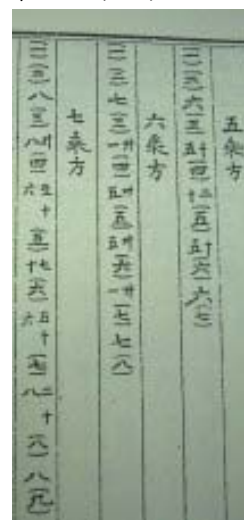 五乘方
(一)(二)六(三)十五(四)二十(五)十五(六)六(七)
六乘方
(一)(二)七(三)廿一(四)卅五(五)卅五(六)廿一(七)七(八)
七乘方
(一)(二)八(三)廿八(四)五十六(五)七十(六)五十六(七)二十八(八)八(九)